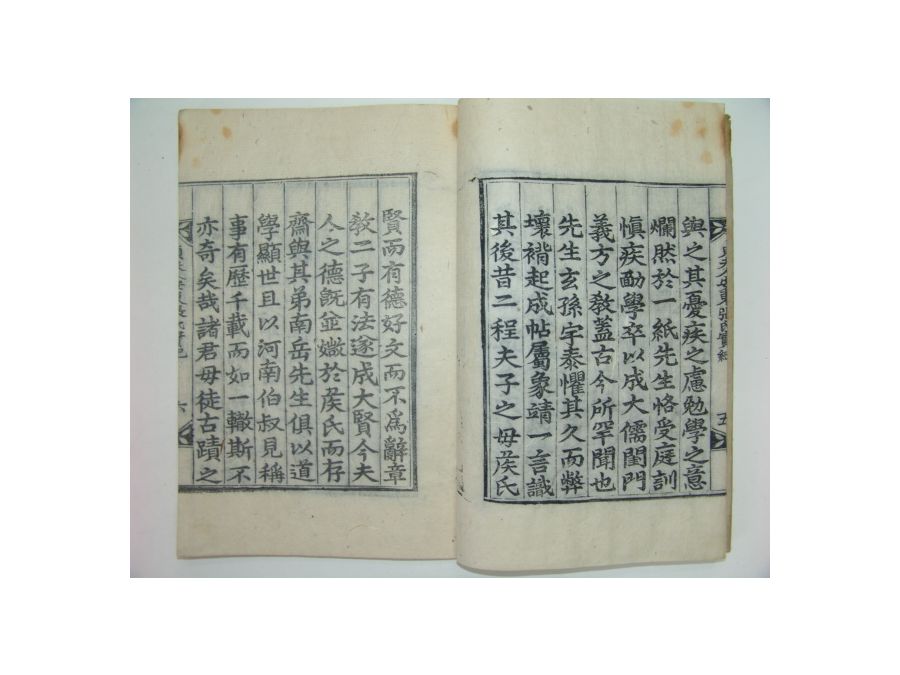 與之其憂疾之慮勉學之意
爛然於一紙先生恪受庭訓
愼疾勔學卒以成大儒閨門
義方之敎蓋古今所罕聞也
先生玄孫宇泰懼其久而弊
壞褙起成帖屬象靖一言識
其後昔二程夫子之毋矦氏
五
賢而有德好文而不爲辭章
敎二子有法遂成大賢今夫
人之德旣並媺於矦氏而存
齋與其弟南岳先生俱以道
學顯世且以河南伯叔見稱
事有歷千載而如一轍斯不
亦奇矣哉諸君毋徒古蹟之
六